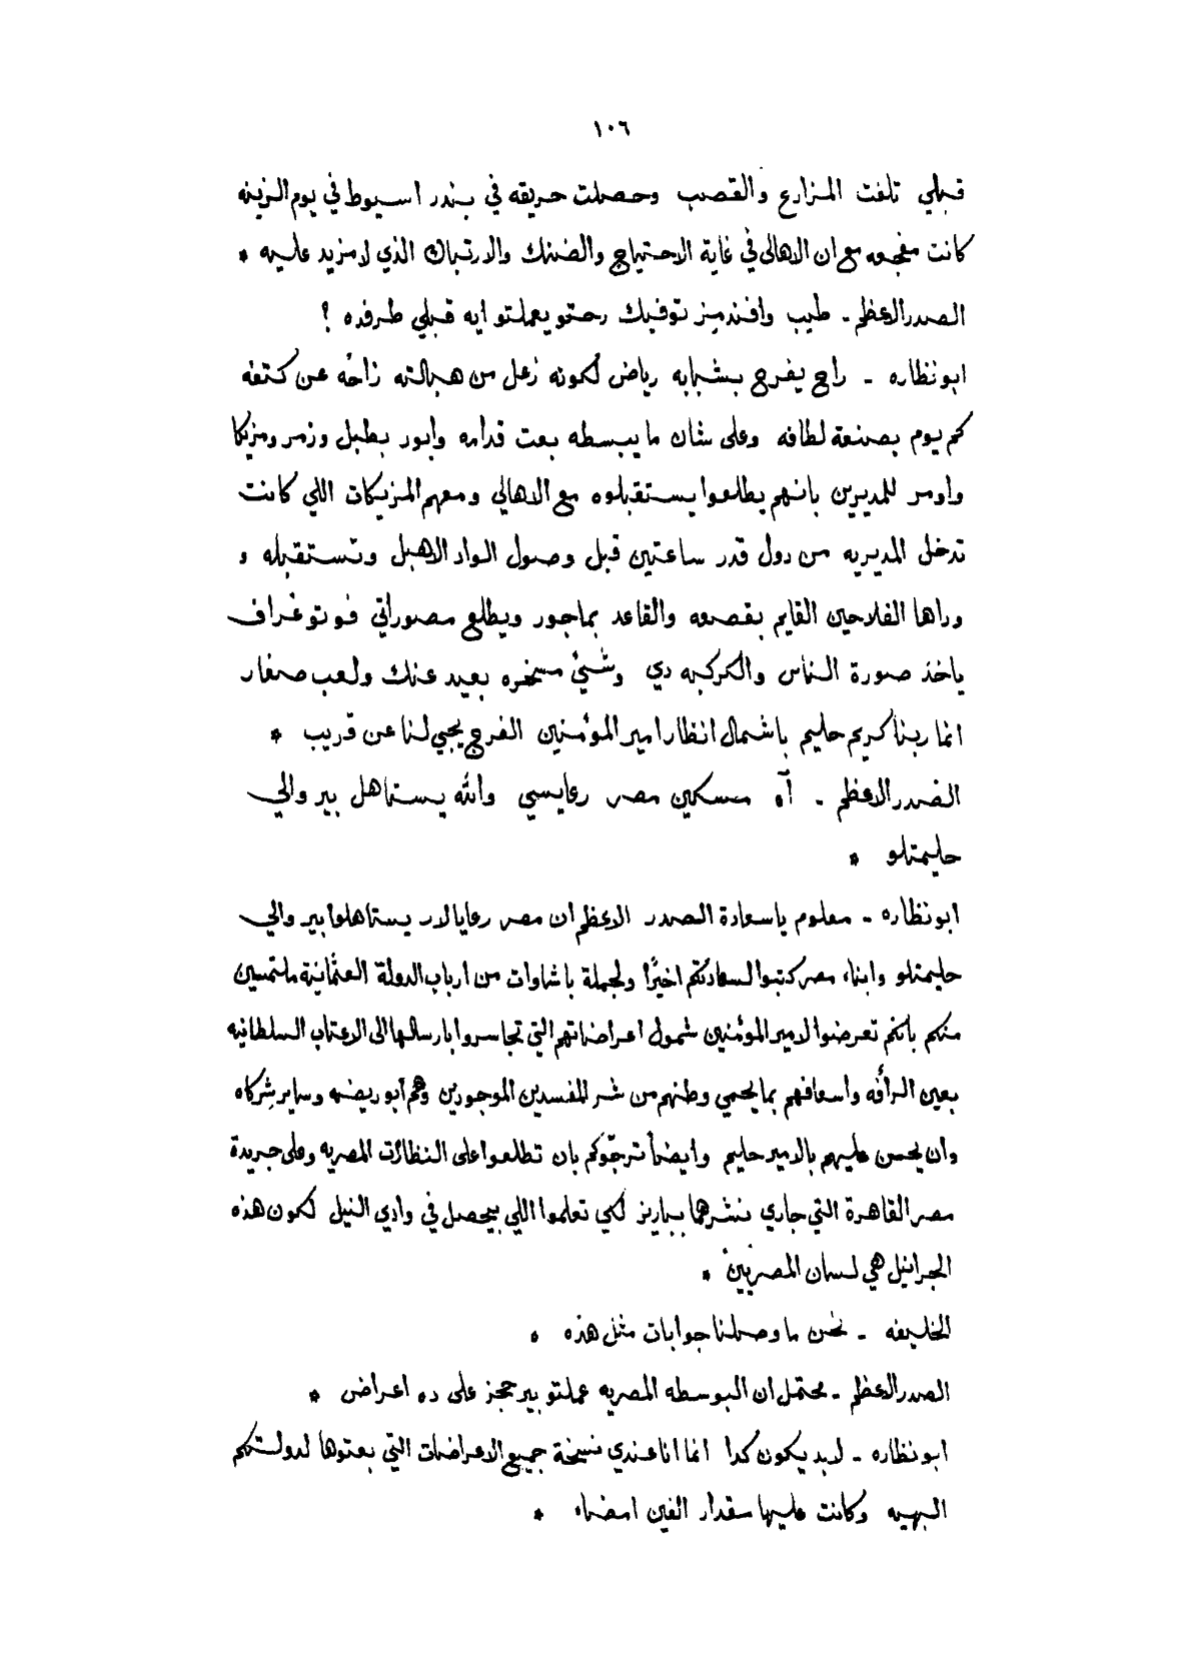 ١٠٦
قبلي تلفت المزارع والقصب وحصلت حريقه في بندر اسيوط في يوم الزينه
كانت مفجعه مع ان الاهالى في غاية الاحتياج والضنك والارتباك الذي لا مزيد عليه *
الصدر الاعظم ـ طيب وافندميز توفيك رحتو يعملتو ايه قبلي طرفده ؟
ابو نظاره ـ راح يفرح بشبابه رياض لكونه زعل من هبالته زاحه عن كتفه
كم يوم بصنعة لطافه وعلى شان ما يبسطه بعت قدامه وابور بطبل وزمر ومزيكا
واومر للمديرين بانهم يطلعوا يستقبلوه مع الاهالي ومعهم المزيكات اللي كانت
تدخل المديريه من دول قدر ساعتين قبل وصول الواد الاهبل وتستقبله و
وراها الفلاحين القايم بقصعه والقاعد بماجور ويطلع مصوراتي فوتوغراف
ياخذ صورة الناس والكركبه دي وشيئ مسخره بعيد عنك ولعب صغار
انما ربنا كريم حليم باشمال انظار امير المؤمنين الفرج يجي لنا عن قريب *
الصدر الاعظم ـ آه مسكين مصر رعايسي والله يستاهل بير والي
حليمتلو *
ابو نظاره ـ معلوم ياسعادة الصدر الاعظم ان مصر رعايالار يستاهلوا بير والي
حليمتلو وابناء مصر كتبوا لسعادتكم اخيرًا ولجملة باشاوات من ارباب الدولة العثمانية ملتمسين
منكم بانكم تعرضوا لامير المؤمنين شمول اعراضاتهم التي تجاسروا بارسالها الى الاعتاب السلطانيه
بعين الرأفه واسعافهم بما يحمي وطنهم من شر المفسدين الموجودين وهم ابو ريضه وساير شركاه
وان يحسن عليهم بالامير حليم وايضاً نرجّوكم بان تطلعوا على النظارات المصريه وعلى جريدة
مصر القاهرة التي جاري نشرهما بباريز لكي تعلموا اللي بيحصل في وادي النيل لكون هذه
الجرانيل هي لسان المصريين *
الخليفه ـ نحن ما وصلنا جوابات مثل هذه *
الصدر الاعظم ـ محتمل ان البوسطه المصريه عملتو بير حجز على ده اعراض *
ابو نظاره ـ لابد يكون كدا انما انا عندي نسخة جميع الاعراضات التي بعتوها لدولتكم
البهيه وكانت عليها مقدار الفين امضاء *